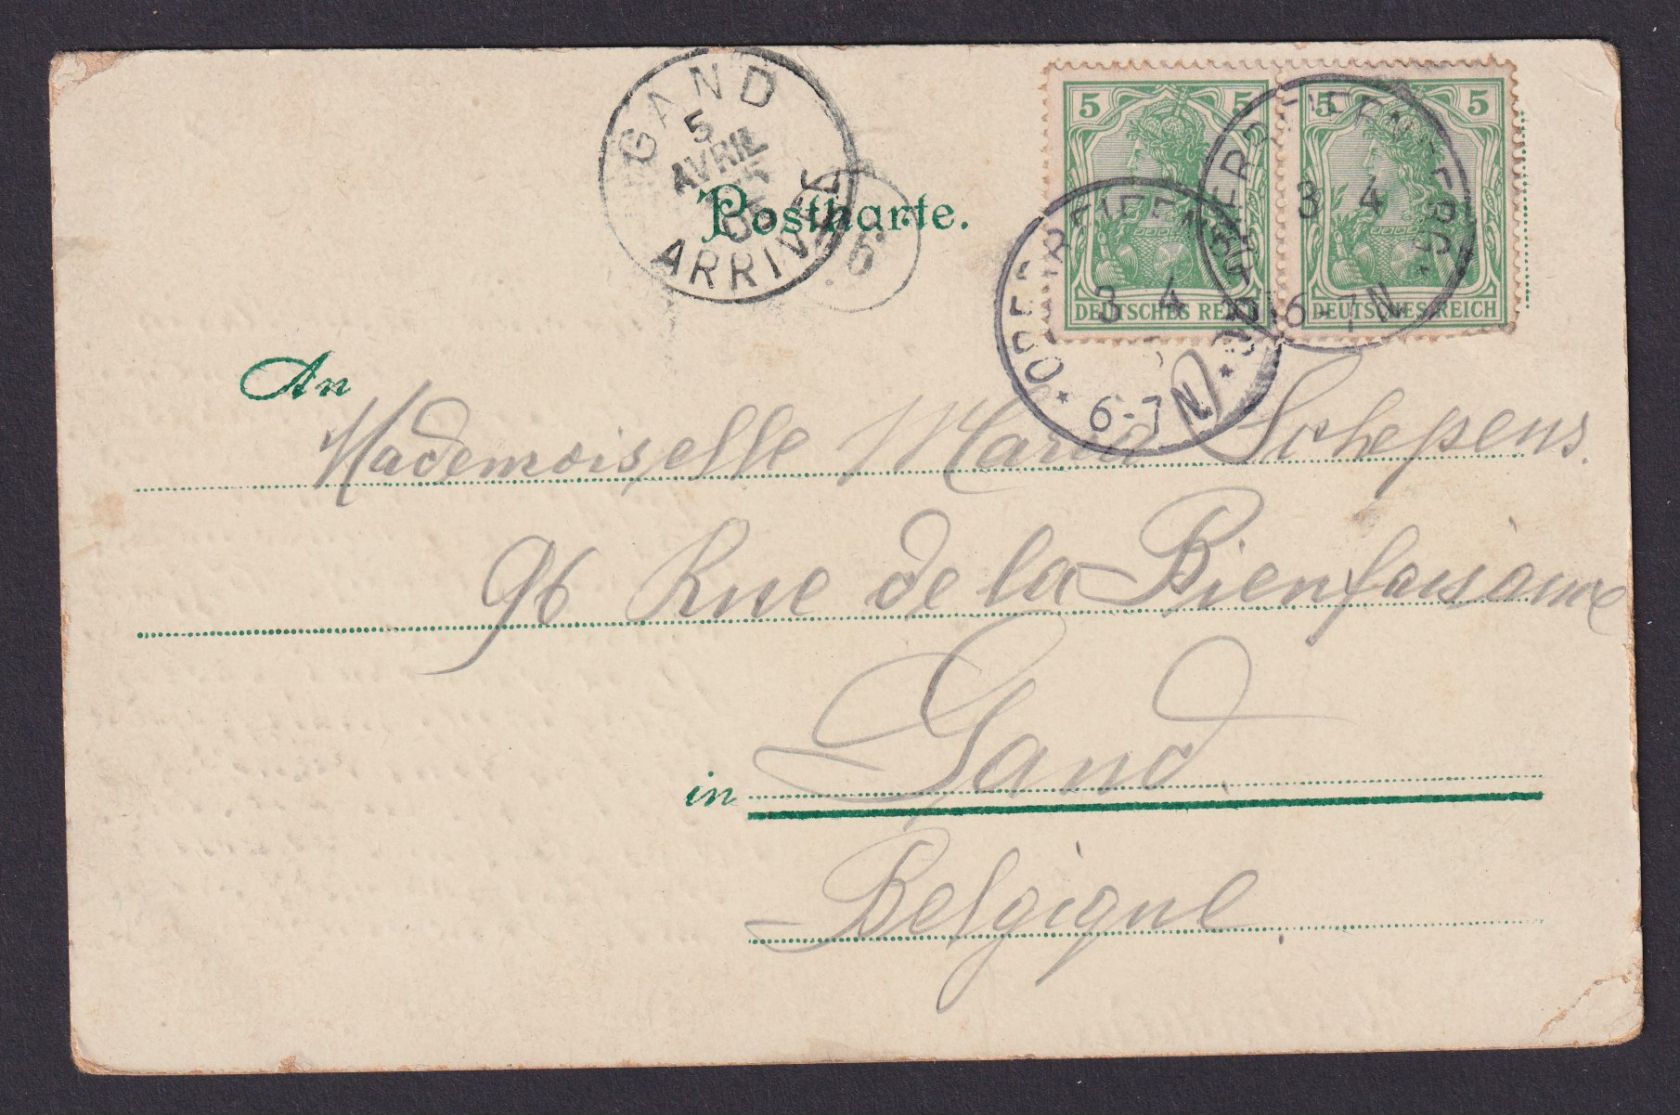 GAND
5
AVRIL
05
ARRIVÉE
6
5 5
DEUTSCHES REICH
5 5
DEUTSCHES REICH
* OBERSEIFENBERG *
3 4
6-7N
3 4
6-7N
Postkarte.
An
Mademoiselle Maria Schepens.
96 Rue de la Bienfaisance
in Gand
Belgique.